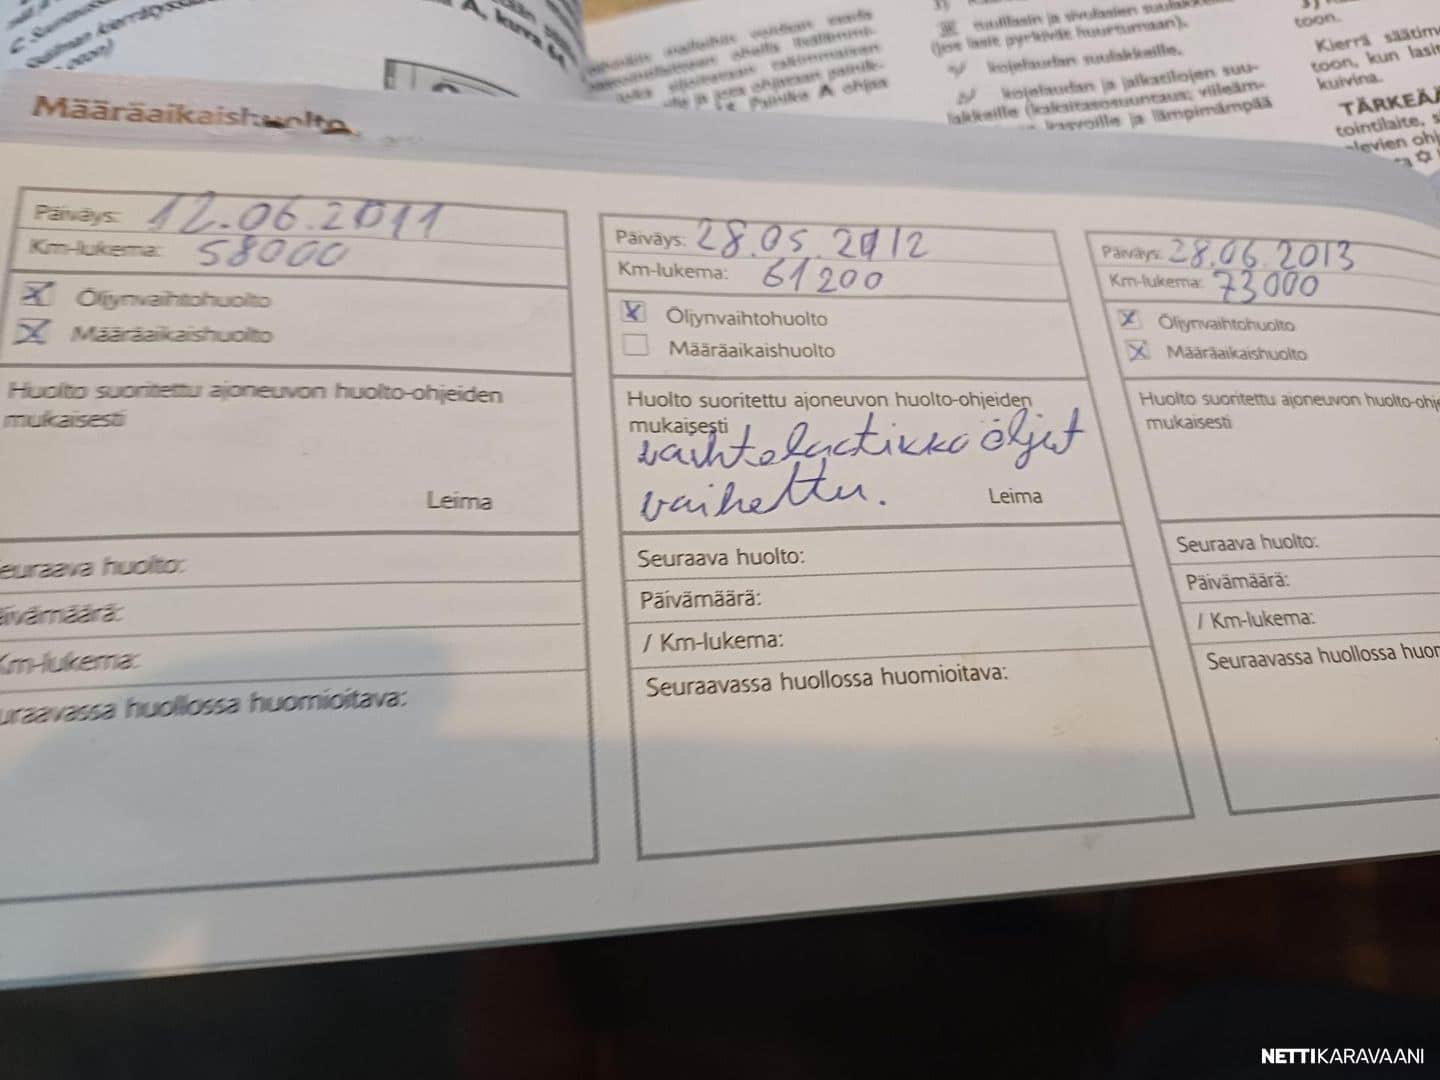 A, kuva
(jos lasit pyrkivät huurtumaan).
kojelaudan suulakkeille.
kojelaudan ja jalkatilojen suu-
lakkeille (kaksitasosuuntaus: viileäm-
kasvoille ja lämpimämpää
toon.
Kierrä säätim
toon, kun lasit
kuivina.
TÄRKEÄÄ
tointilaite, s
olevien ohj
Määräaikaishuolto
Päiväys: 12.06.2011
Km-lukema: 58000
Öljynvaihtohuolto
Määräaikaishuolto
Huolto suoritettu ajoneuvon huolto-ohjeiden
mukaisesti
Leima
euraava huolto:
äivämäärä:
Km-lukema:
uraavassa huollossa huomioitava:
Päiväys: 28.05.2012
Km-lukema: 61200
Öljynvaihtohuolto
Määräaikaishuolto
Huolto suoritettu ajoneuvon huolto-ohjeiden
mukaisesti
vaihtolaatikko öljyt
vaihettu.
Leima
Seuraava huolto:
Päivämäärä:
/ Km-lukema:
Seuraavassa huollossa huomioitava:
Päiväys: 28.06.2013
Km-lukema: 73000
Öljynvaihtohuolto
Määräaikaishuolto
Huolto suoritettu ajoneuvon huolto-ohje
mukaisesti
Seuraava huolto:
Päivämäärä:
/ Km-lukema:
Seuraavassa huollossa huom
NETTIKARAVAANI